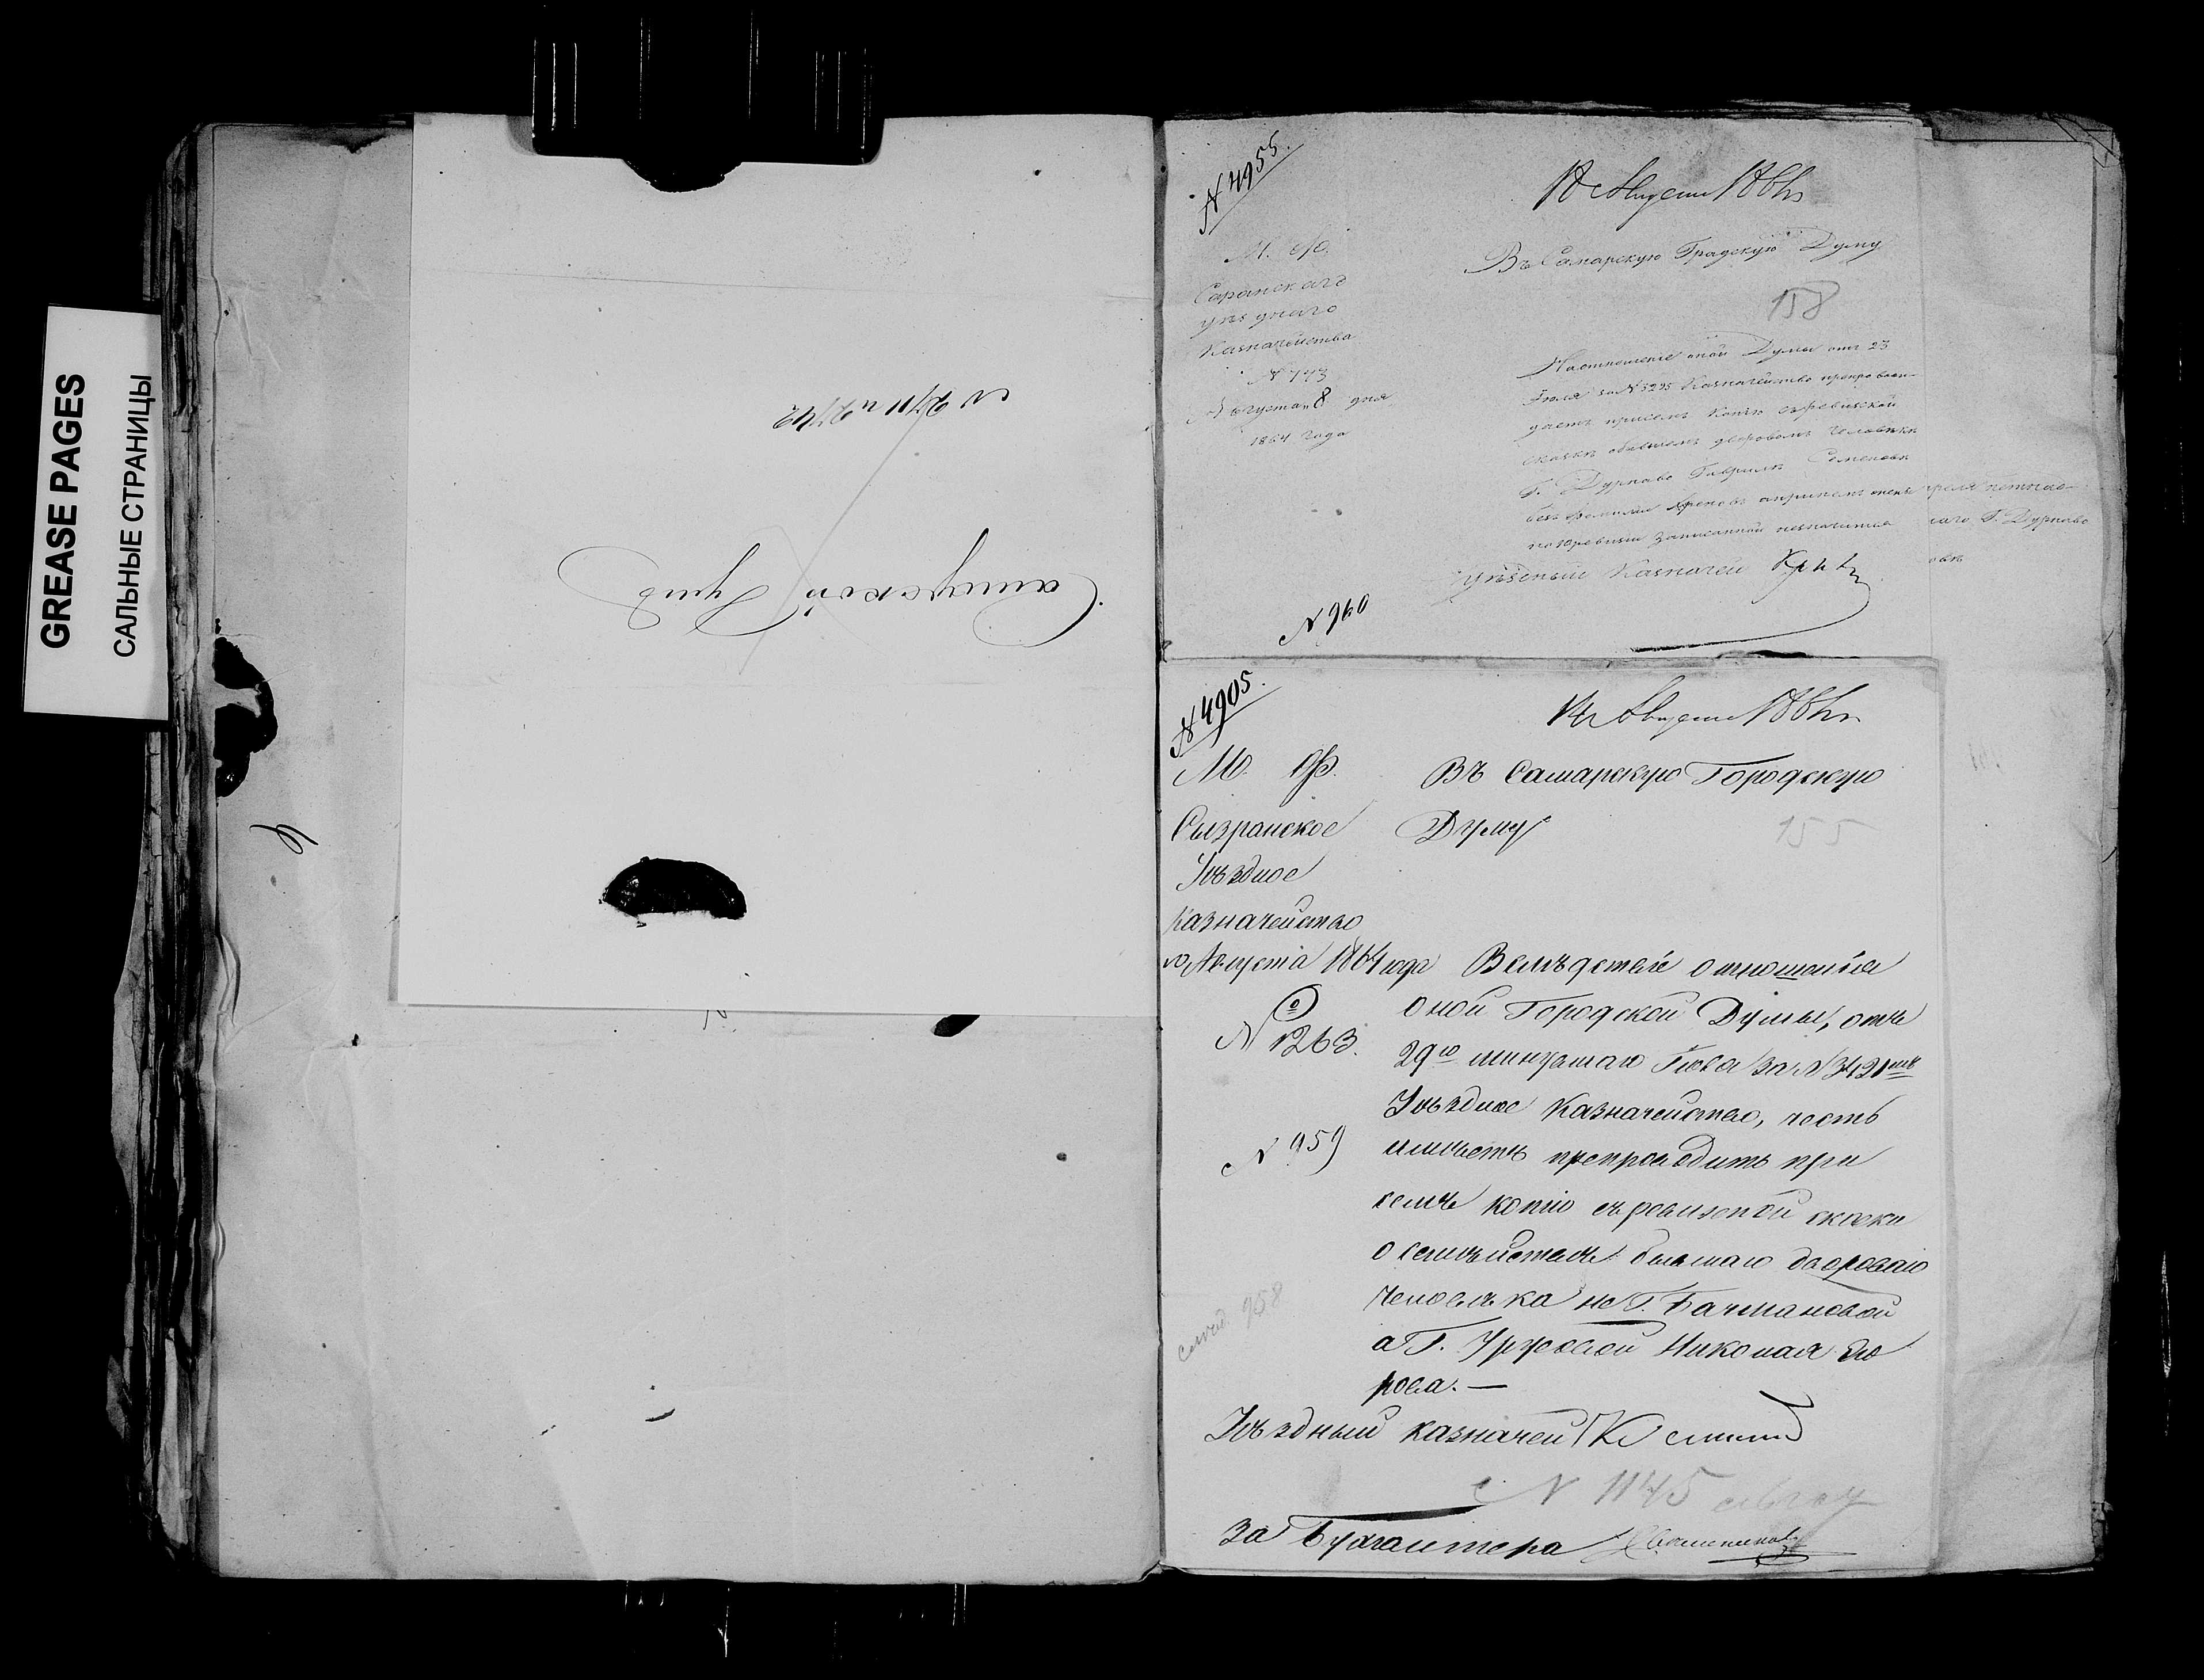 GREASE PAGES
САЛЬНЫЕ СТРАНИЦЫ
Думѣ
№ 4955.
18 Августа 1864
М. Ф.
Саранскаго
уѣзднаго
Казначейства
№ 743
Августа 8 дня
1864 года
Въ Самарскую Градскую Думу
158
Наотношеніе оной Думы отъ 23
Іюля за № 3295 Казначейство препровож-
даетъ присемъ копію съ ревизской
сказки обывшемъ дворовомъ человѣкѣ
Г. Дурнаво Гаврилѣ Семеновѣ
поревизіи записанной незначится
Г. Дурнаво
Уѣздный Казначей
№ 960
№ 4905.
14 Августа 1864
М. Ф.
Сызранское
Уѣздное
Казначейство
10 Августа 1864 года
№ 1263.
№ 959
Въ Самарскую Городскую
Думу
155
Вслѣдствіе отношенія
оной Городской Думы, отъ
29го минувшаго Іюля за № 3421мъ
Уѣздное Казначейство, честь
имѣетъ препроводить при
семъ копію съ ревизской сказки
о семѣйствѣ бывшаго двороваго
человѣка не Г. Бачмановой
а Г. Уружевой Николая Его
рова. —
958
Уѣздный казначей
№ 1145
За Бухгалтера